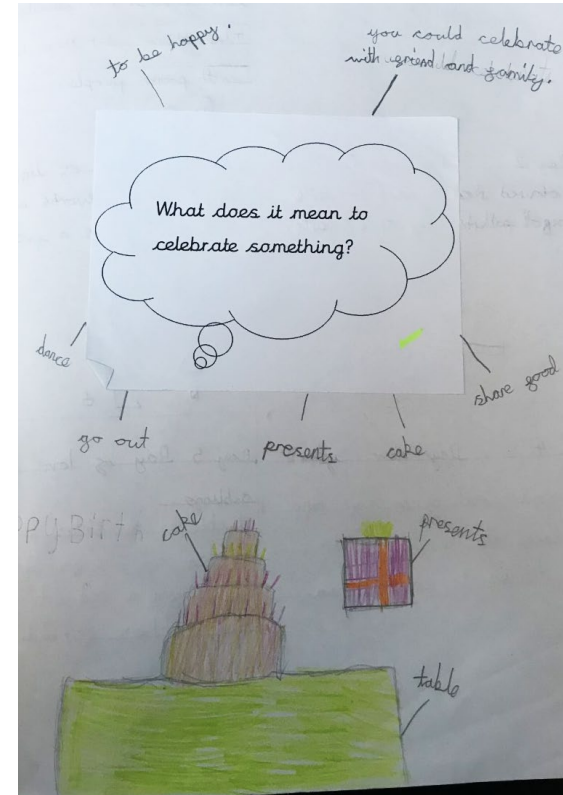 to be happy.
you could celebrate
with griend and gamily.
What does it mean to
celebrate something?
dance
share good
go out
presents
cake
ppy Birth
cake
presents
table